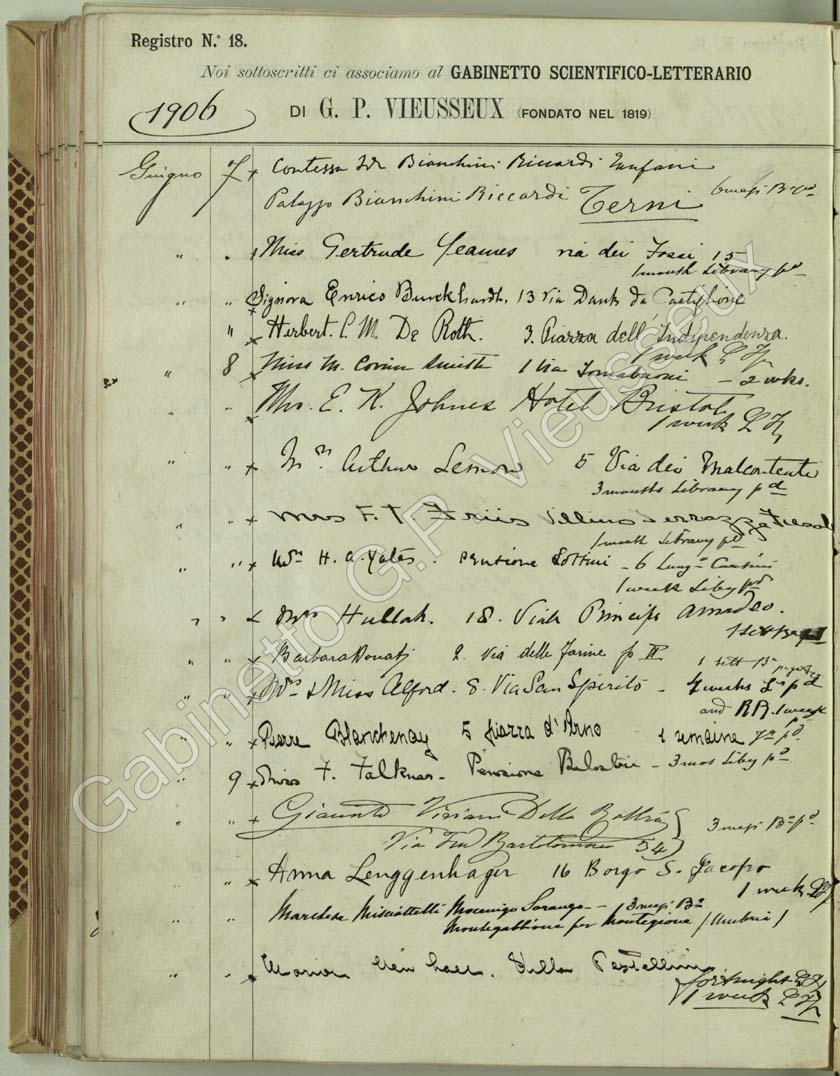 Registro N.º 18.
Noi sottoscritti ci associamo al GABINETTO SCIENTIFICO-LETTERARIO
1906
DI G. P. VIEUSSEUX (FONDATO NEL 1819)
Giugno 7 Contessa Bianchini Riccardi
Palazzo Bianchini Riccardi Terni 6 mesi
Miss Gertrude Yeames via dei Fossi 15
1 month Library pd
Signora Enrico Burckhardt, 13 Via Dante da Castiglione
Herbert C. M. De Roth. 3. Piazza dell' Indipendenza.
1 week
8 Miss M. 1 Via Tornabuoni - 2 wks.
Mrs. E. K. Johnes Hotel Bristol
1 week
Mrs Arthur Lemon 5 Via dei Malcontenti
3 months Library pd
Mrs F. T. Friis Villino Terrazza
1 month Library pd
Mrs H. A. Yates. Pensione - 6 Lung.º
1 week Liby pd
Hullah. 18. Viale Principe Amadeo.
Barbara Donati 2. Via delle Farine p II 1 sett
Mrs & Miss Alford. 8. Via San Spirito - 4 weeks pd
and RR. 1 week
Pierre Blanchenay 5 piazza d'Arno 1 semaine
9 Miss F. Falkner - Pensione - 3 mos Liby pd
Giacinto Viviani Della Robbia 3 mesi
Via Fra Bartolommeo 54
Anna Lenggenhager 16 Borgo S. Jacopo
1 week
Marchesa Misciattelli Mocenigo Soranzo - 3 mesi
Montegabbione per Montegiove (Umbria)
Villa
fortnight
1 week
Gabinetto G.P. Vieusseux